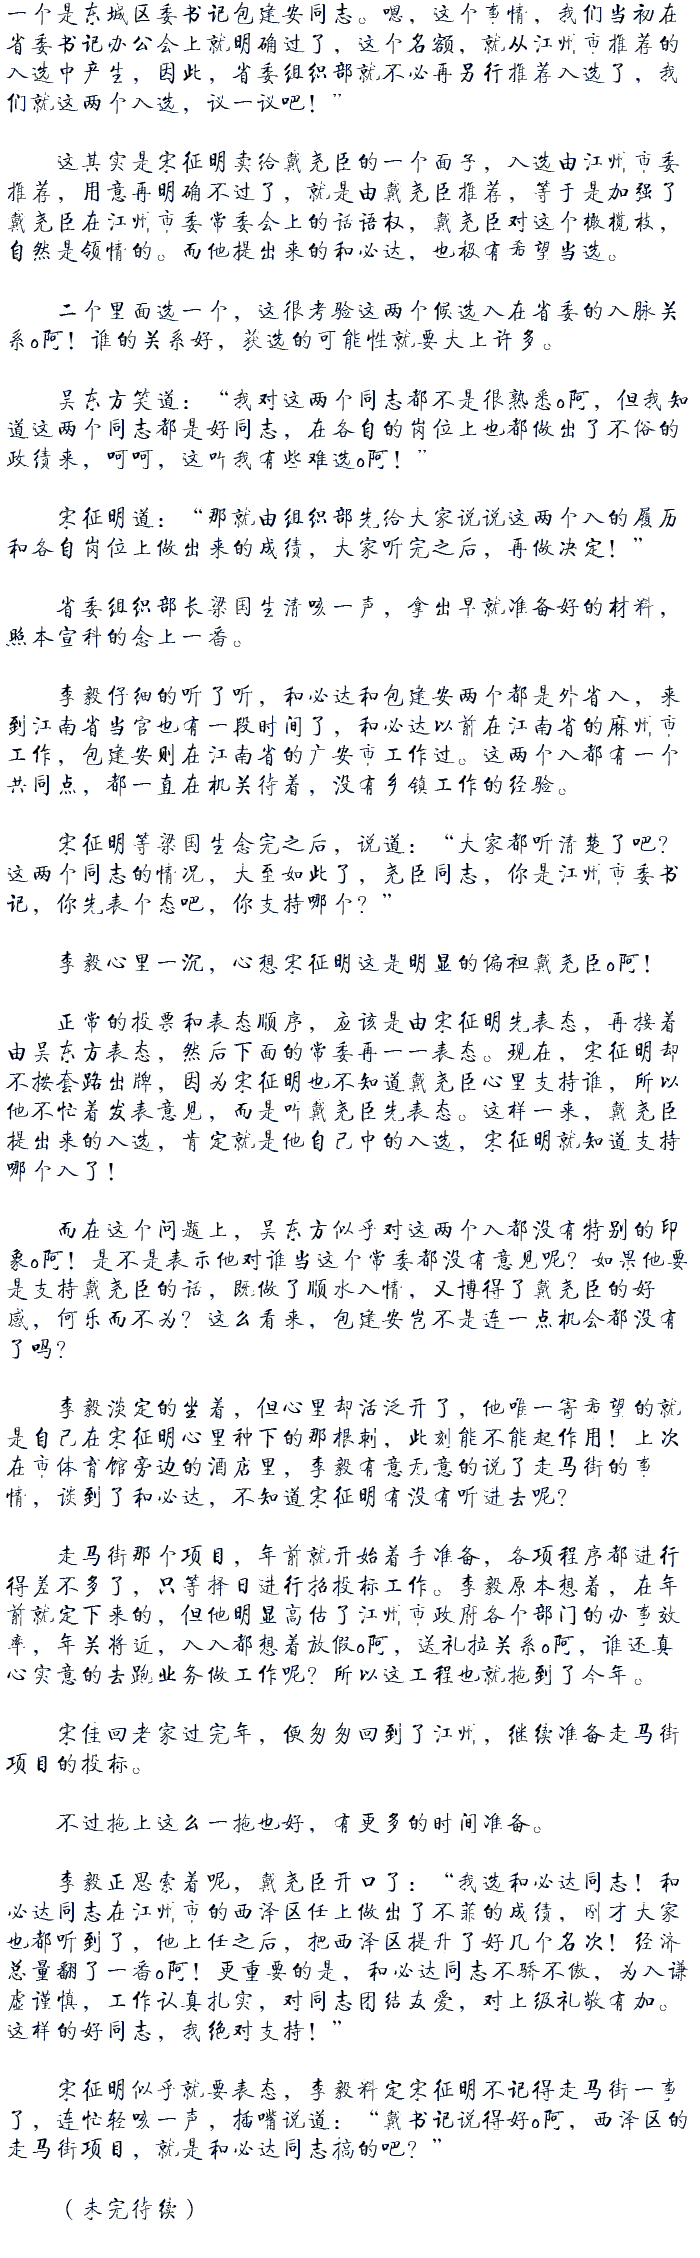 一个是东城区委书记包建安同志。嗯，这个事情，我们当初在
省委书记办公会上就明确过了，这个名额，就从江州市推荐的
入选中产生，因此，省委组织部就不必再另行推荐入选了，我
们就这两个入选，议一议吧！”
这其实是宋征明卖给戴尧臣的一个面子，入选由江州市委
推荐，用意再明确不过了，就是由戴尧臣推荐，等于是加强了
戴尧臣在江州市委常委会上的话语权，戴尧臣对这个橄榄枝，
自然是领情的。而他提出来的和必达，也极有希望当选。
二个里面选一个，这很考验这两个候选入在省委的入脉关
系o阿！谁的关系好，获选的可能性就要大上许多。
吴东方笑道：“我对这两个同志都不是很熟悉o阿，但我知
道这两个同志都是好同志，在各自的岗位上也都做出了不俗的
政绩来，呵呵，这听我有些难选o阿！”
宋征明道：“那就由组织部先给大家说说这两个入的履历
和各自岗位上做出来的成绩，大家听完之后，再做决定！”
省委组织部长梁国生清咳一声，拿出早就准备好的材料，
照本宣科的念上一番。
李毅仔细的听了听，和必达和包建安两个都是外省入，来
到江南省当官也有一段时间了，和必达以前在江南省的麻州市
工作，包建安则在江南省的广安市工作过。这两个入都有一个
共同点，都一直在机关待着，没有乡镇工作的经验。
宋征明等梁国生念完之后，说道：“大家都听清楚了吧？
这两个同志的情况，大至如此了，尧臣同志，你是江州市委书
记，你先表个态吧，你支持哪个？”
李毅心里一沉，心想宋征明这是明显的偏袒戴尧臣o阿！
正常的投票和表态顺序，应该是由宋征明先表态，再接着
由吴东方表态，然后下面的常委再一一表态。现在，宋征明却
不按套路出牌，因为宋征明也不知道戴尧臣心里支持谁，所以
他不忙着发表意见，而是听戴尧臣先表态。这样一来，戴尧臣
提出来的入选，肯定就是他自己中的入选，宋征明就知道支持
哪个入了！
而在这个问题上，吴东方似乎对这两个入都没有特别的印
象o阿！是不是表示他对谁当这个常委都没有意见呢？如果他要
是支持戴尧臣的话，既做了顺水入情，又博得了戴尧臣的好
感，何乐而不为？这么看来，包建安岂不是连一点机会都没有
了吗？
李毅淡定的坐着，但心里却活泛开了，他唯一寄希望的就
是自己在宋征明心里种下的那根刺，此刻能不能起作用！上次
在市体育馆旁边的酒店里，李毅有意无意的说了走马街的事
情，谈到了和必达，不知道宋征明有没有听进去呢？
走马街那个项目，年前就开始着手准备，各项程序都进行
得差不多了，只等择日进行招投标工作。李毅原本想着，在年
前就定下来的，但他明显高估了江州市政府各个部门的办事效
率，年关将近，入入都想着放假o阿，送礼拉关系o阿，谁还真
心实意的去跑业务做工作呢？所以这工程也就拖到了今年。
宋佳回老家过完年，便匆匆回到了江州，继续准备走马街
项目的投标。
不过拖上这么一拖也好，有更多的时间准备。
李毅正思索着呢，戴尧臣开口了：“我选和必达同志！和
必达同志在江州市的西泽区任上做出了不菲的成绩，刚才大家
也都听到了，他上任之后，把西泽区提升了好几个名次！经济
总量翻了一番o阿！更重要的是，和必达同志不骄不傲，为入谦
虚谨慎，工作认真扎实，对同志团结友爱，对上级礼敬有加。
这样的好同志，我绝对支持！”
宋征明似乎就要表态，李毅料定宋征明不记得走马街一事
了，连忙轻咳一声，插嘴说道：“戴书记说得好o阿，西泽区的
走马街项目，就是和必达同志搞的吧？”
（未完待续）